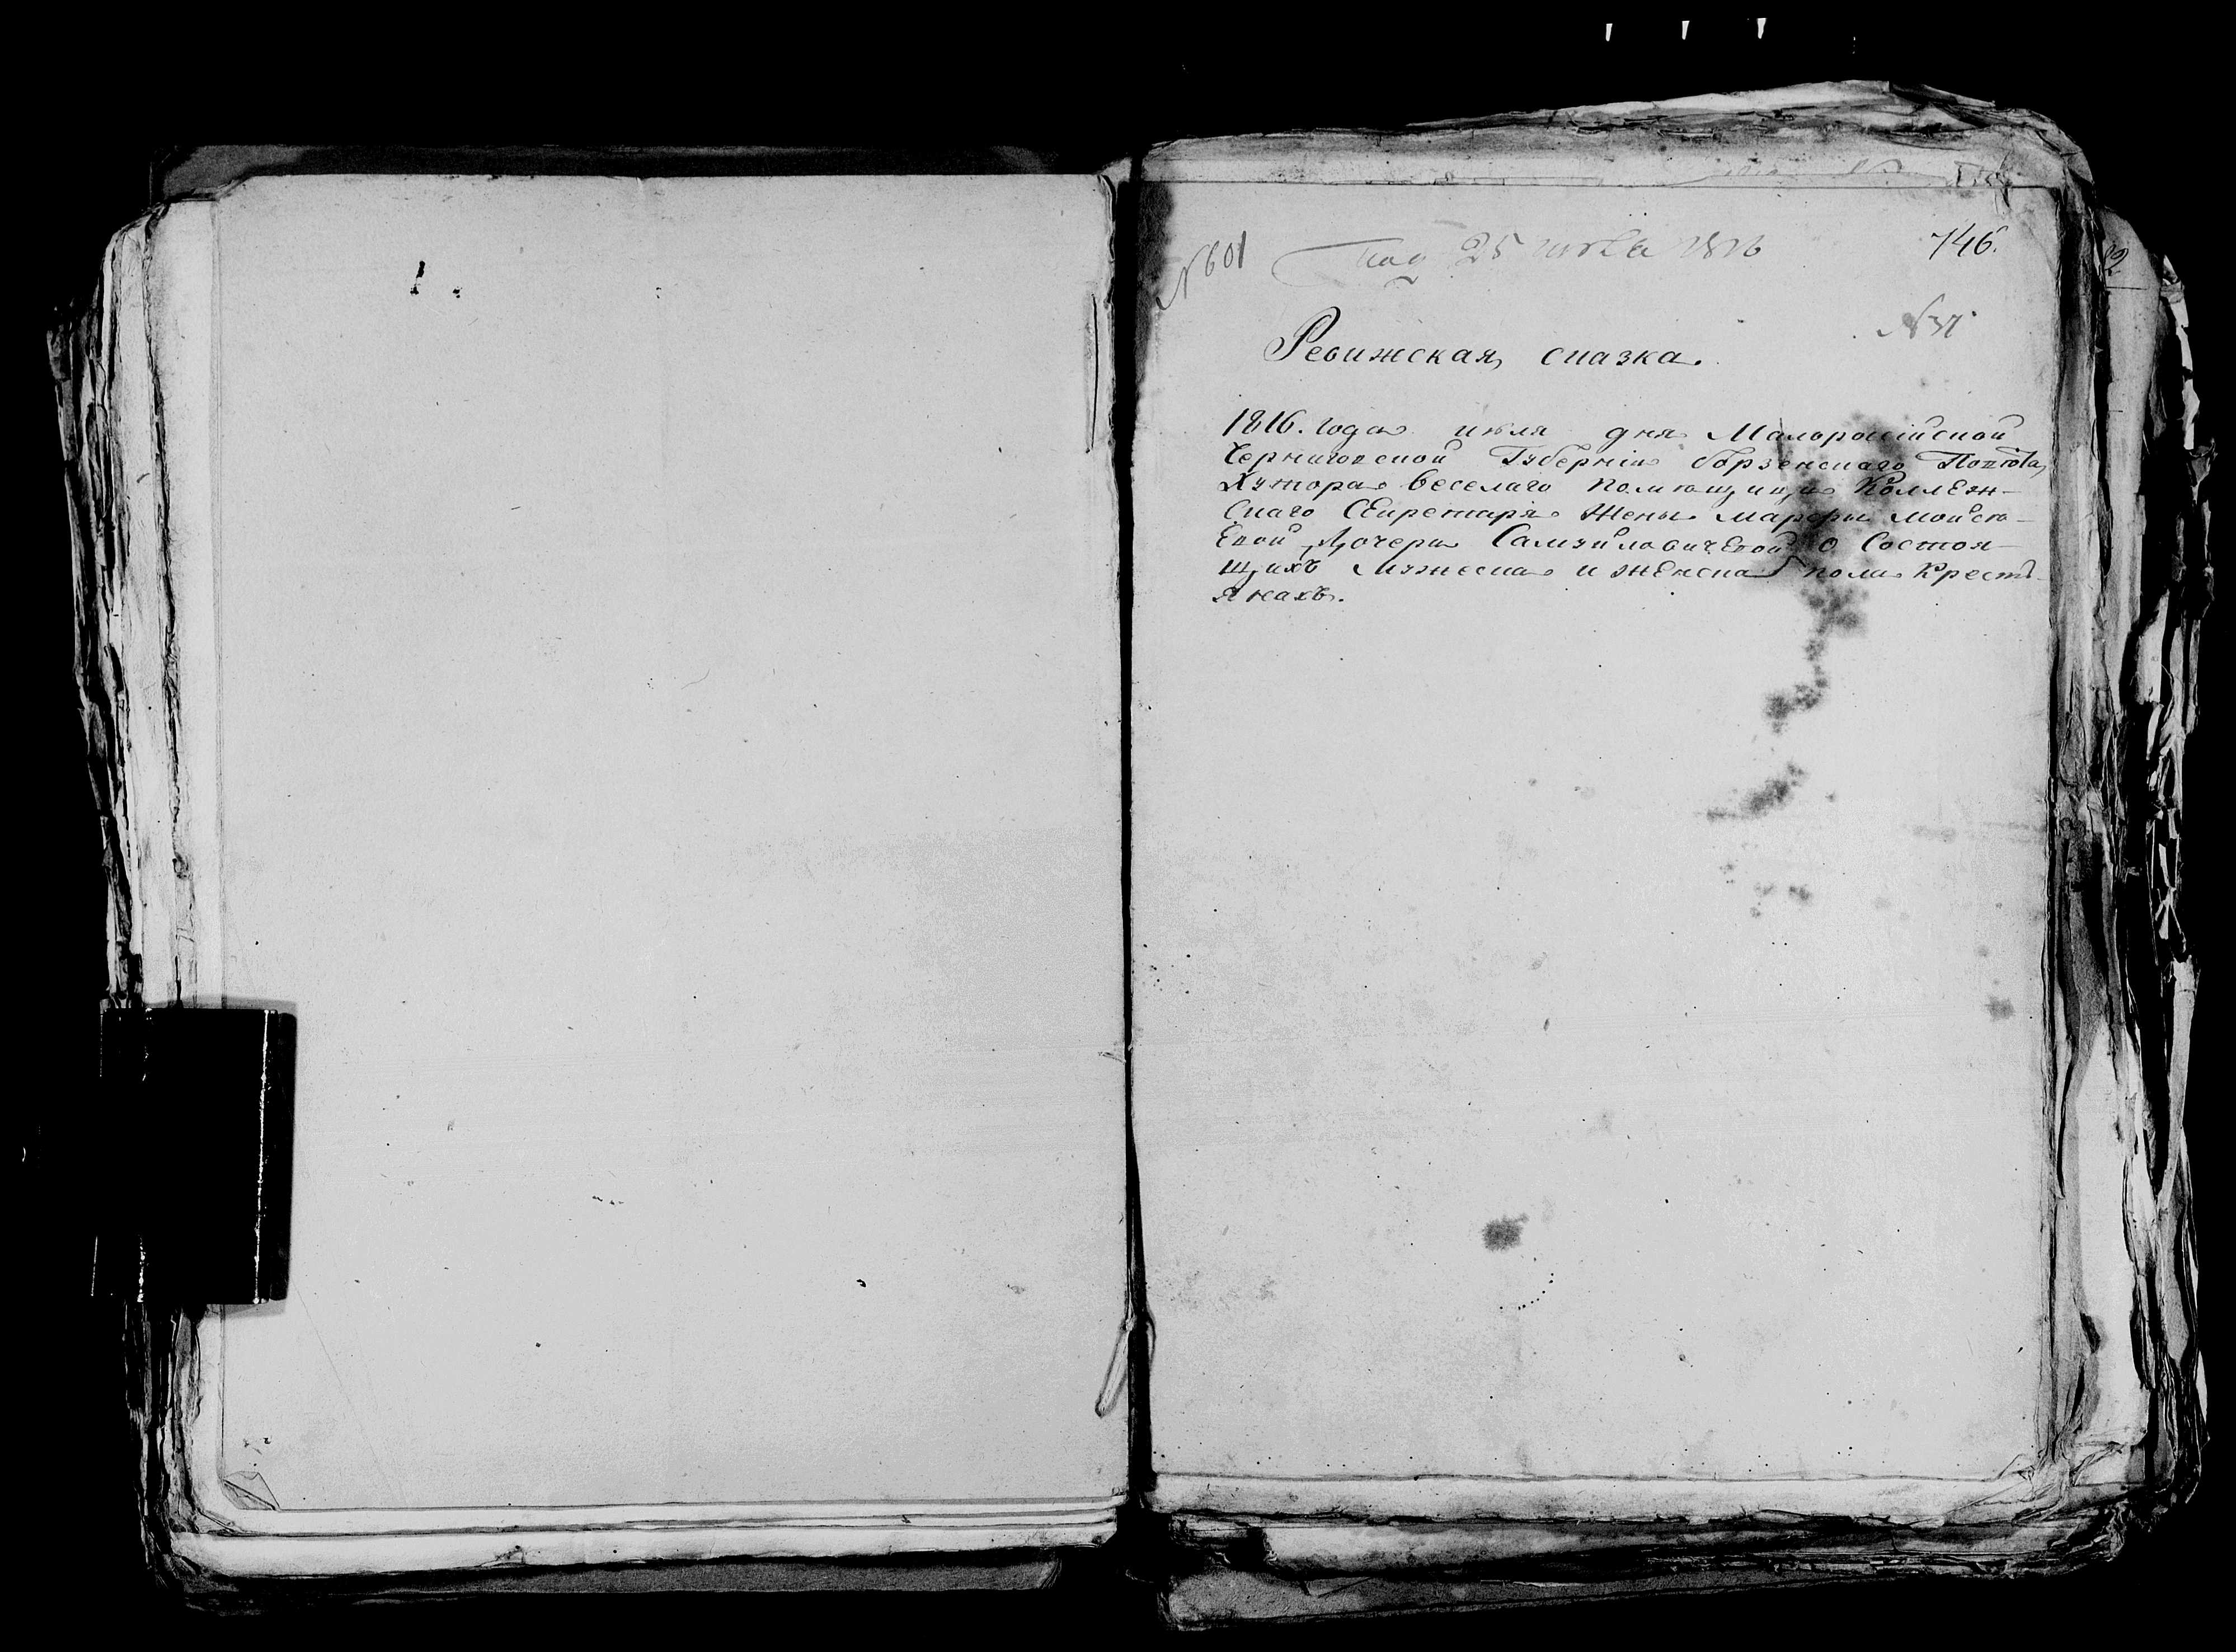 №601 Под 25 июля 1816 746.
№37
Ревижская сказка.
1816. года июля дня Малороссійской
Черниговской Губерніи борзенскаго Повѣта,
Хутора Веселаго помѣщици Коллеж-
скаго Секретаря жены Марфы Моисѣ-
евой дочери Самуйловичевой о Состоя-
щихъ мужеска и женска пола Крестъ-
янахъ.